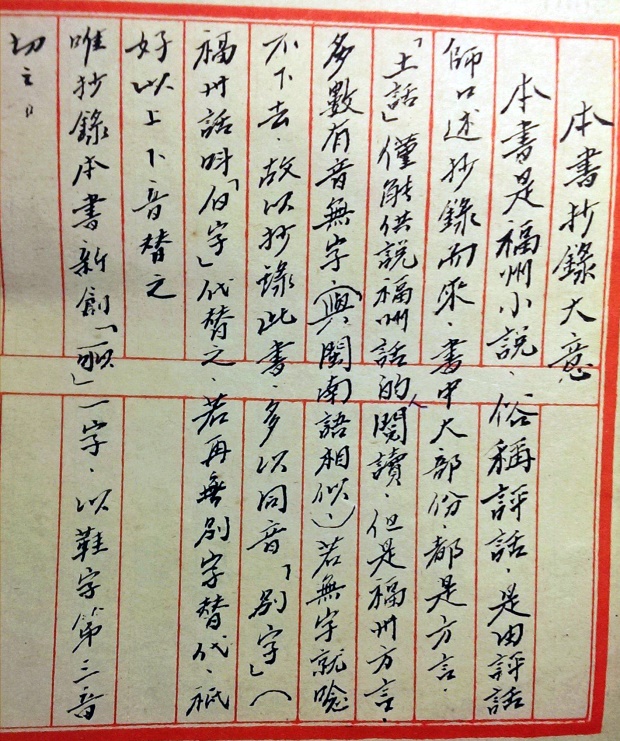 本書抄錄大意
本書是福州小説、俗稱評話、是由評話
師口述抄錄而來、書中大部份、都是方言、
「土話」僅能供説福州話的人閲讀、但是福州方言、
多數有音無字、(與閩南語相似、)若無字就唸
不下去、故以抄錄此書、多以同音「別字」(
福州話呌「白字」代替之、若再無別字替代、祇
好以上下音替之
唯抄錄本書新創「」一字、以鞋字第三音
切之、